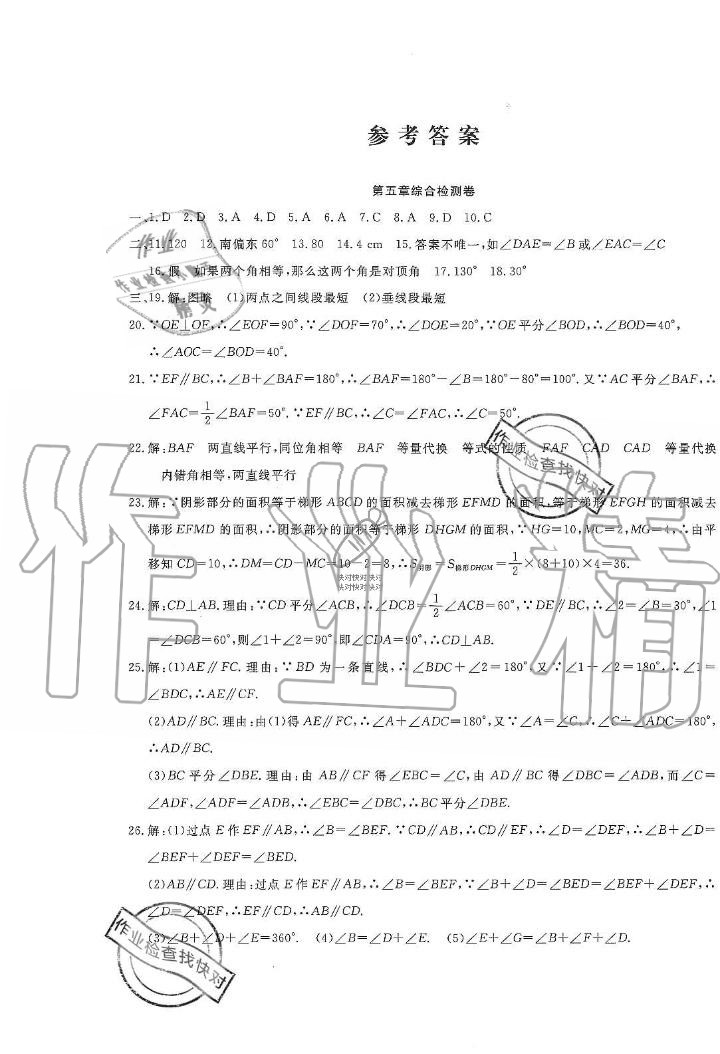 参考答案
第五章综合检测卷
一、1.D 2.D 3.A 4.D 5.A 6.A 7.C 8.A 9.D 10.C
二、11.120 12.南偏东60° 13.80 14.4 cm 15.答案不唯一,如∠DAE=∠B或∠EAC=∠C
16.假 如果两个角相等,那么这两个角是对顶角 17.130° 18.30°
三、19.解:图略 (1)两点之间线段最短 (2)垂线段最短
20.∵OE⊥OF,∴∠EOF=90°,∵∠DOF=70°,∴∠DOE=20°,∵OE平分∠BOD,∴∠BOD=40°,
∴∠AOC=∠BOD=40°.
21.∵EF∥BC,∴∠B+∠BAF=180°,∴∠BAF=180°-∠B=180°-80°=100°.又∵AC平分∠BAF,∴
∠FAC=1/2∠BAF=50°.∵EF∥BC,∴∠C=∠FAC,∴∠C=50°.
22.解:BAF 两直线平行,同位角相等 BAF 等量代换 等式的性质 FAF CAD CAD 等量代换
内错角相等,两直线平行
23.解:∵阴影部分的面积等于梯形ABCD的面积减去梯形EFMD的面积,等于梯形EFGH的面积减去
梯形EFMD的面积,∴阴影部分的面积等于梯形DHGM的面积,∵HG=10,MC=2,MG=4,∴由平
移知CD=10,∴DM=CD-MC=10-2=8,∴S阴影=S梯形DHGM=1/2×(8+10)×4=36.
24.解:CD⊥AB.理由:∵CD平分∠ACB,∴∠DCB=1/2∠ACB=60°,∵DE∥BC,∴∠2=∠B=30°,∠1
=∠DCB=60°,则∠1+∠2=90°.即∠CDA=90°,∴CD⊥AB.
25.解:(1)AE∥FC.理由:∵BD为一条直线,∴∠BDC+∠2=180°.又∵∠1+∠2=180°,∴∠1=
∠BDC,∴AE∥CF.
(2)AD∥BC.理由:由(1)得AE∥FC,∴∠A+∠ADC=180°,又∵∠A=∠C,∴∠C+∠ADC=180°,
∴AD∥BC.
(3)BC平分∠DBE.理由:由AB∥CF得∠EBC=∠C,由AD∥BC得∠DBC=∠ADB,而∠C=
∠ADF,∠ADF=∠ADB,∴∠EBC=∠DBC,∴BC平分∠DBE.
26.解:(1)过点E作EF∥AB,∴∠B=∠BEF.∵CD∥AB,∴CD∥EF,∴∠D=∠DEF,∴∠B+∠D=
∠BEF+∠DEF=∠BED.
(2)AB∥CD.理由:过点E作EF∥AB,∴∠B=∠BEF,∵∠B+∠D=∠BED=∠BEF+∠DEF,∴
∠D=∠DEF,∴EF∥CD,∴AB∥CD.
(3)∠B+∠D+∠E=360°. (4)∠B=∠D+∠E. (5)∠E+∠G=∠B+∠F+∠D.
作业精
作业检查找快对
作业检查找快对
快对快对快对
快对快对快对